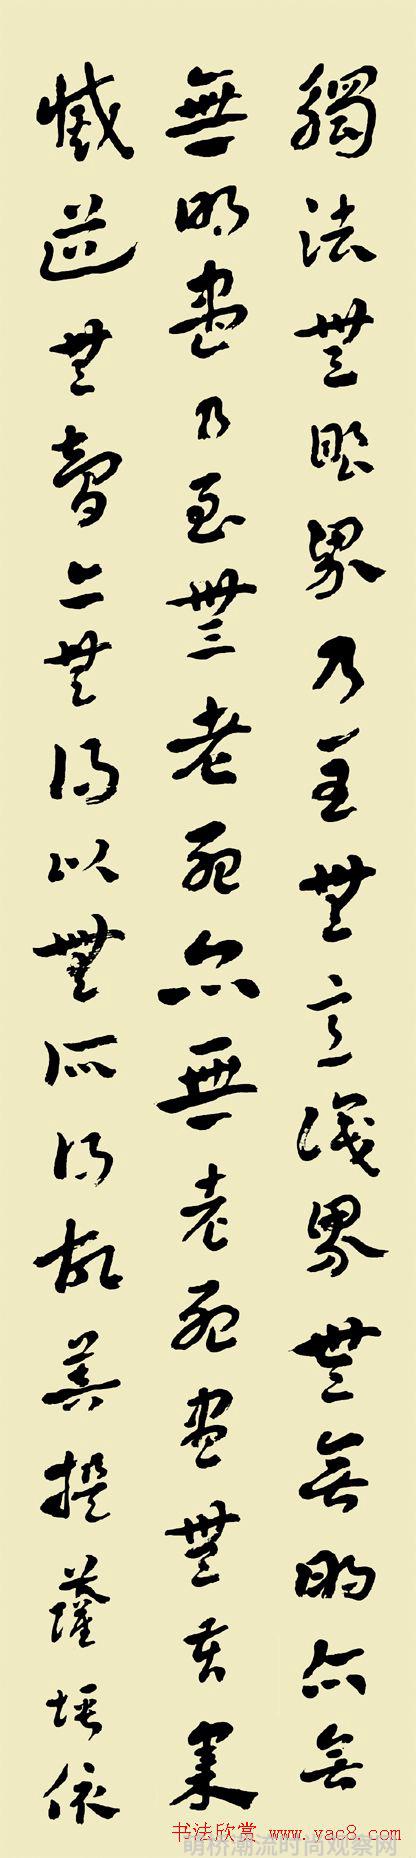 觸法無眼界乃至無意識界無無明亦無
無明盡乃至無老死亦無老死盡無苦集
滅道無智亦無得以無所得故菩提薩埵依
书法欣赏 www.yac8.com
萌桥潮流时尚观察网